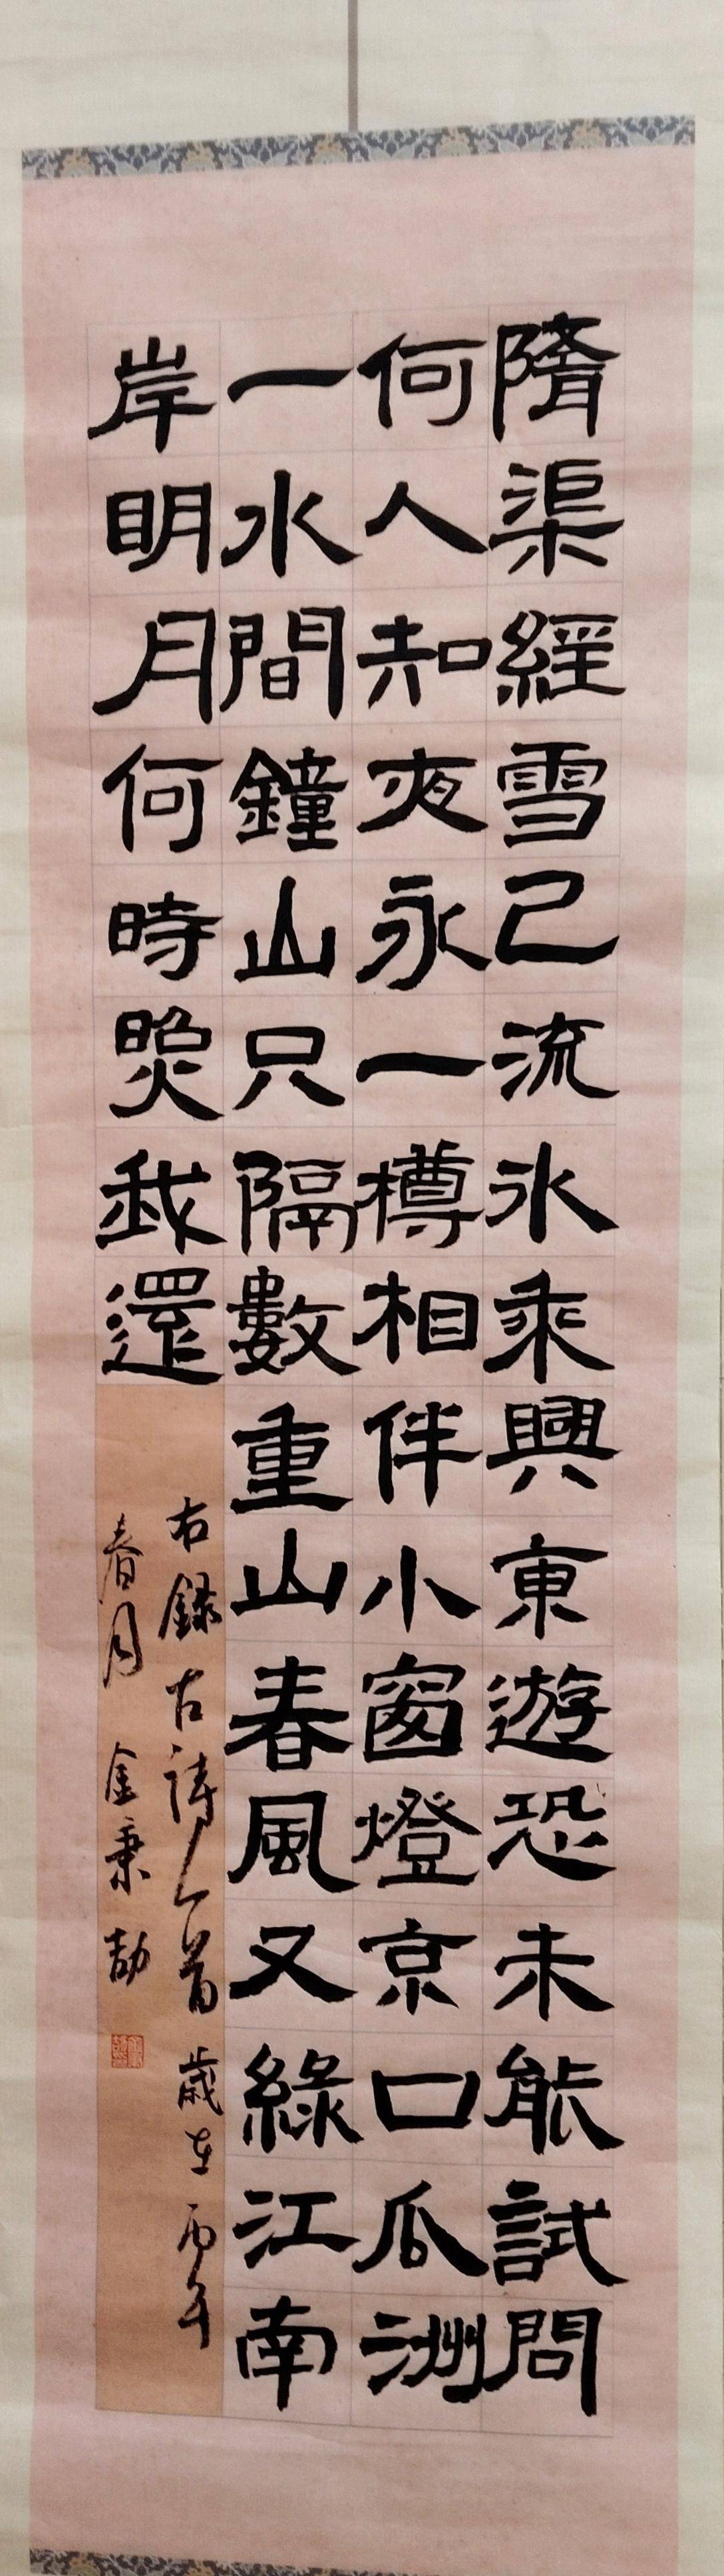 隋渠經雪已流冰乘興東遊恐未能試問
何人知夜永一樽相伴小窗燈京口瓜洲
一水間鐘山只隔數重山春風又綠江南
岸明月何時照我還
右錄古詩二首 歲在丙午
春月 金秉劼